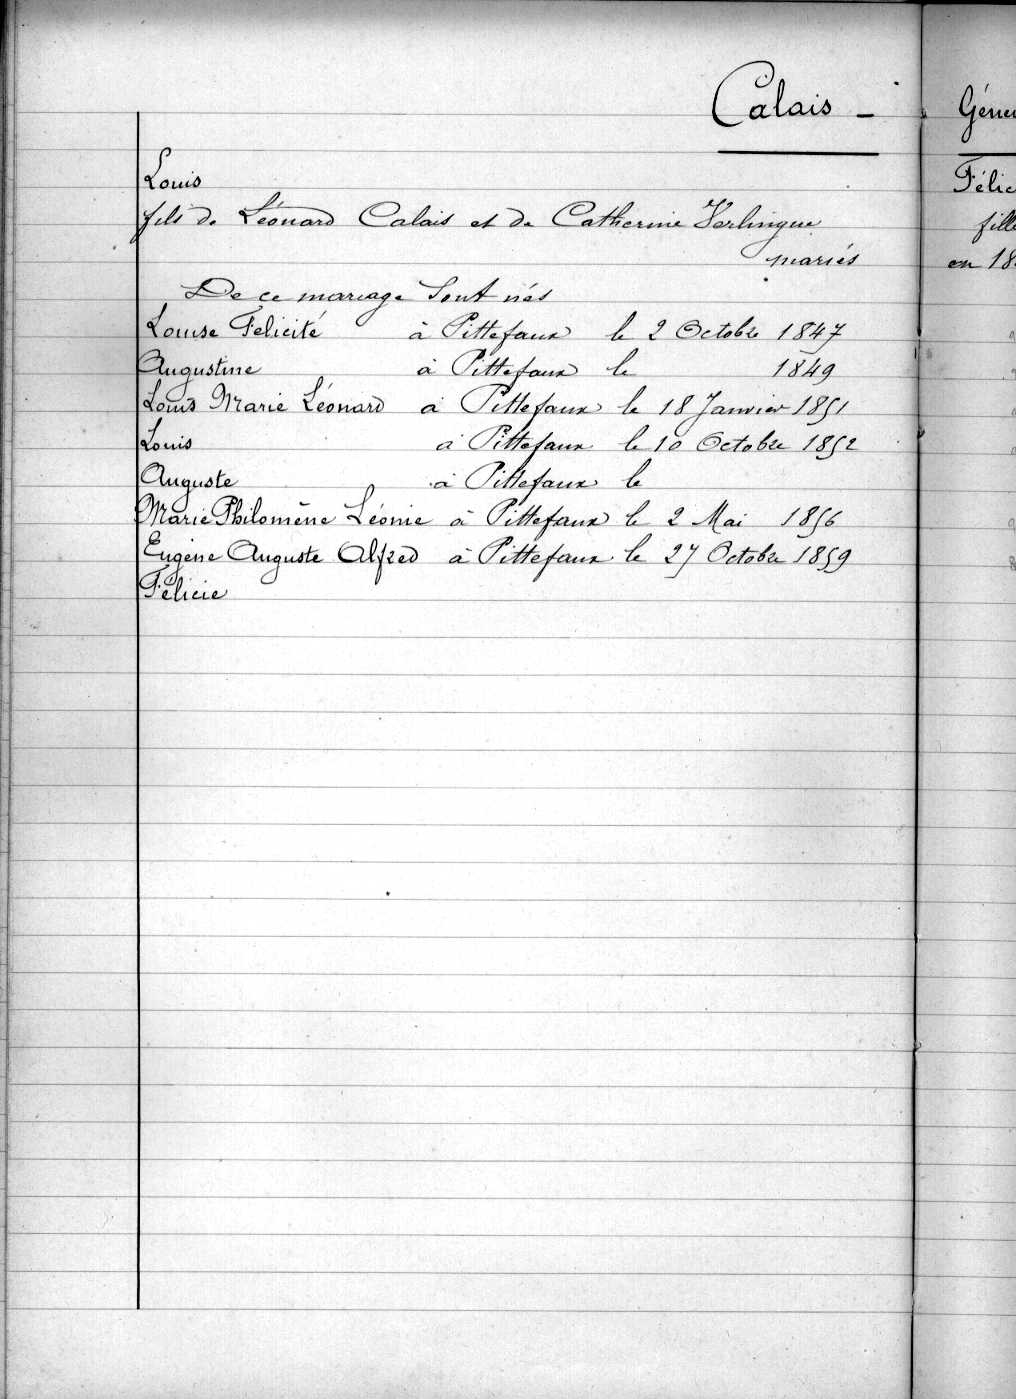 Calais -
Louis
fils de Léonard Calais et de Catherine Verlingue
mariés
De ce mariage Sont nés
Louise Felicité à Pittefaux le 2 Octobre 1847
Augustine à Pittefaux le 1849
Louis Marie Léonard à Pittefaux le 18 Janvier 1851
Louis à Pittefaux le 10 Octobre 1852
Auguste à Pittefaux le
Marie Philomène Léonie à Pittefaux le 2 Mai 1856
Eugène Auguste Alfred à Pittefaux le 27 Octobre 1859
Félicie
Félic
fille
en 18